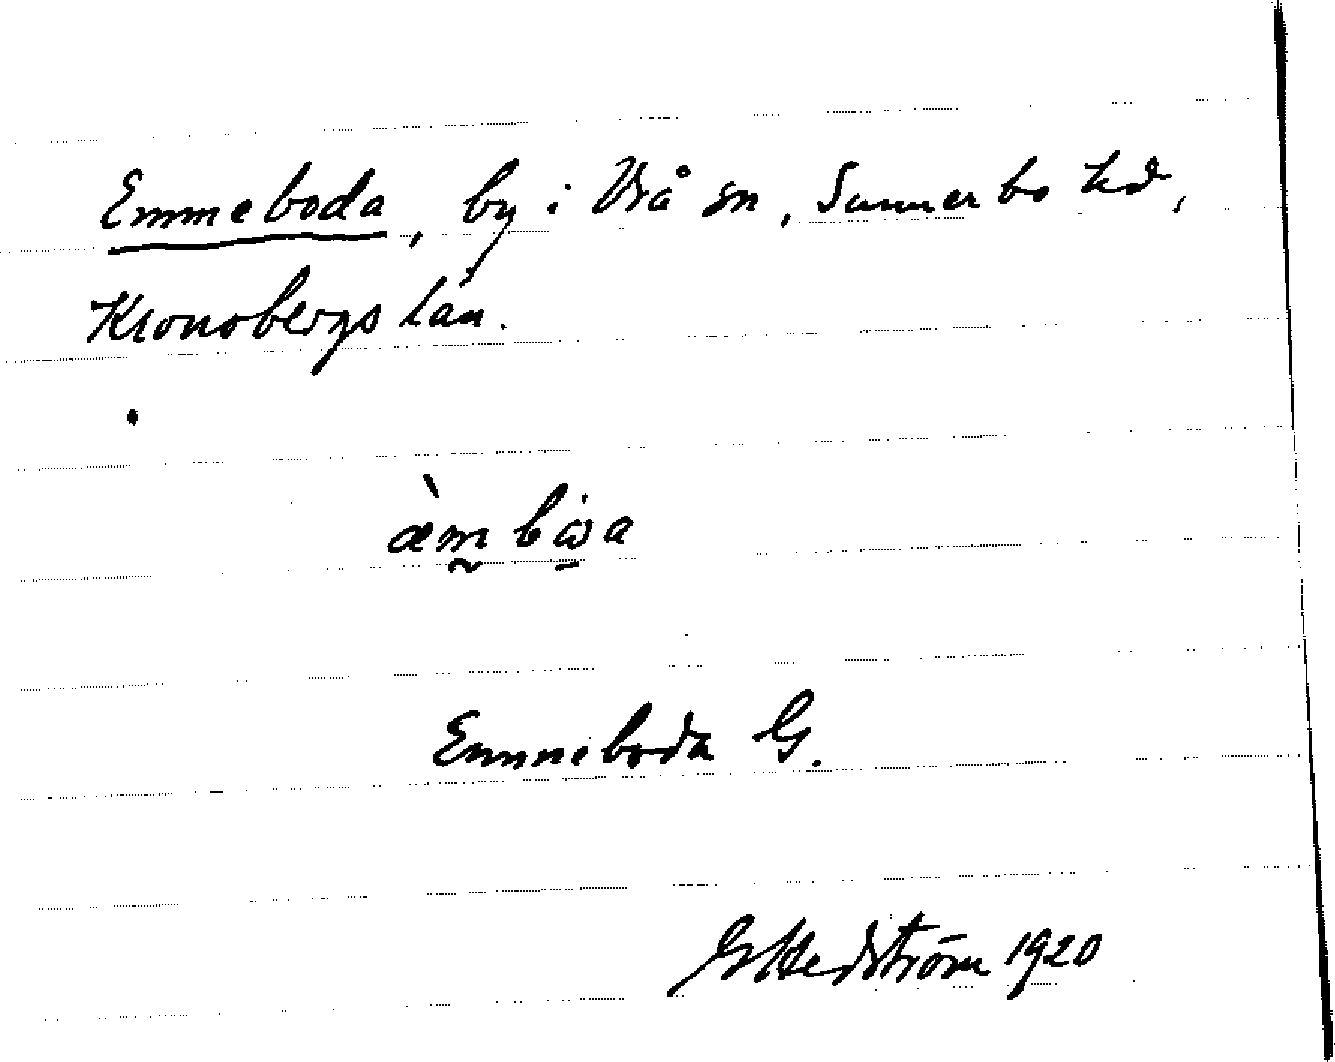 Emmeboda, by i Vrå sn, Sunnerbo hd,
Kronobergs län.
æ̀m̰ bω̱a
Emmeboda G.
G Hedström 1920